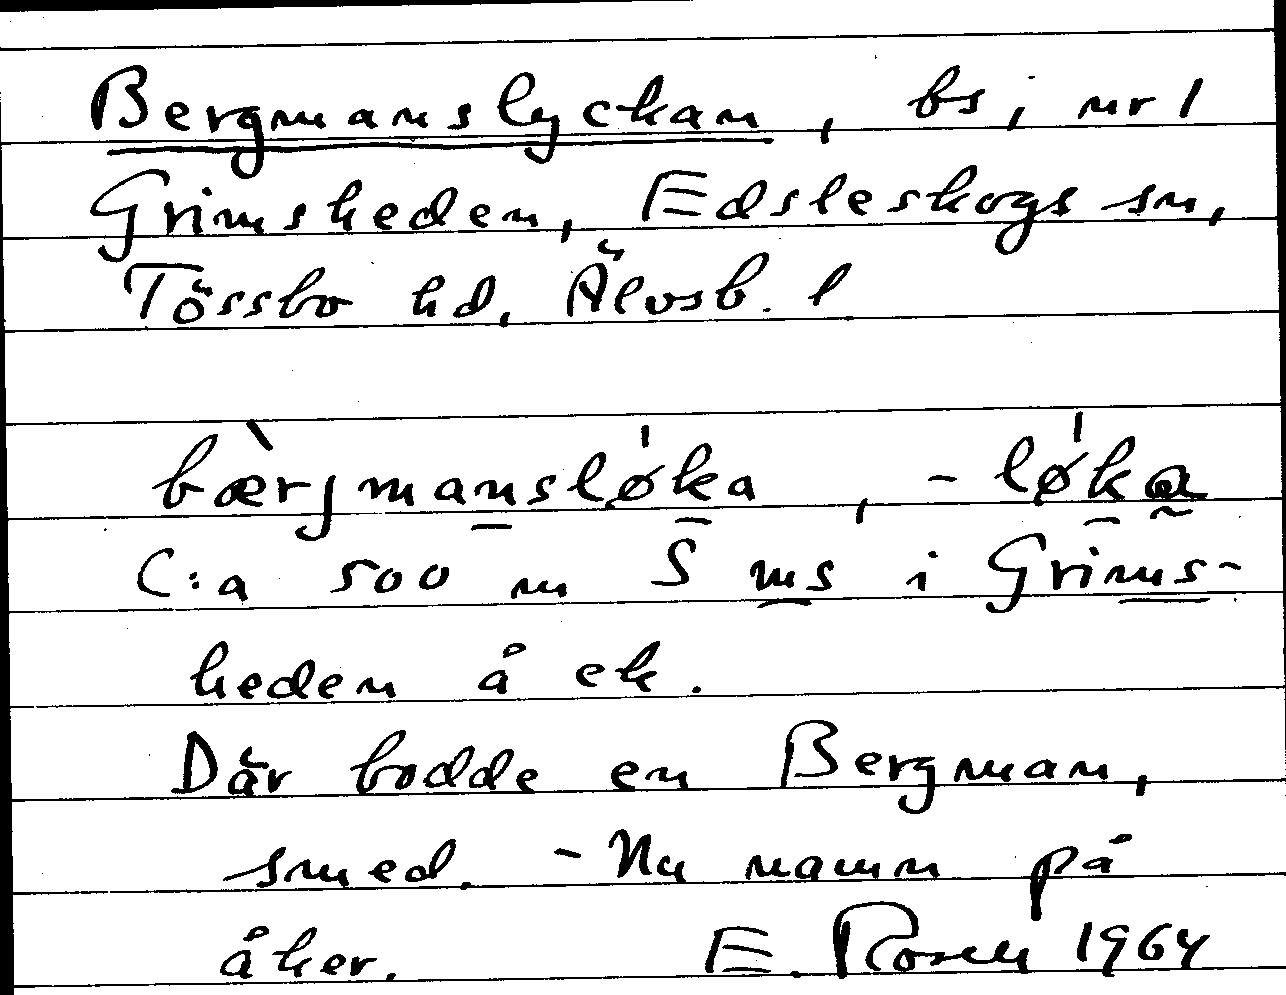 Bergmanslyckan, bs, nr 1
Grimsheden, Edsleskogs sn,
Tössbo hd, Älvsb. l
bæ̀rjmansløka, -løka
C:a 500 m S ms i Grims-
heden å ek.
Där bodde en Bergman,
smed. - Nu namn på
åker. E. Rosell 1964